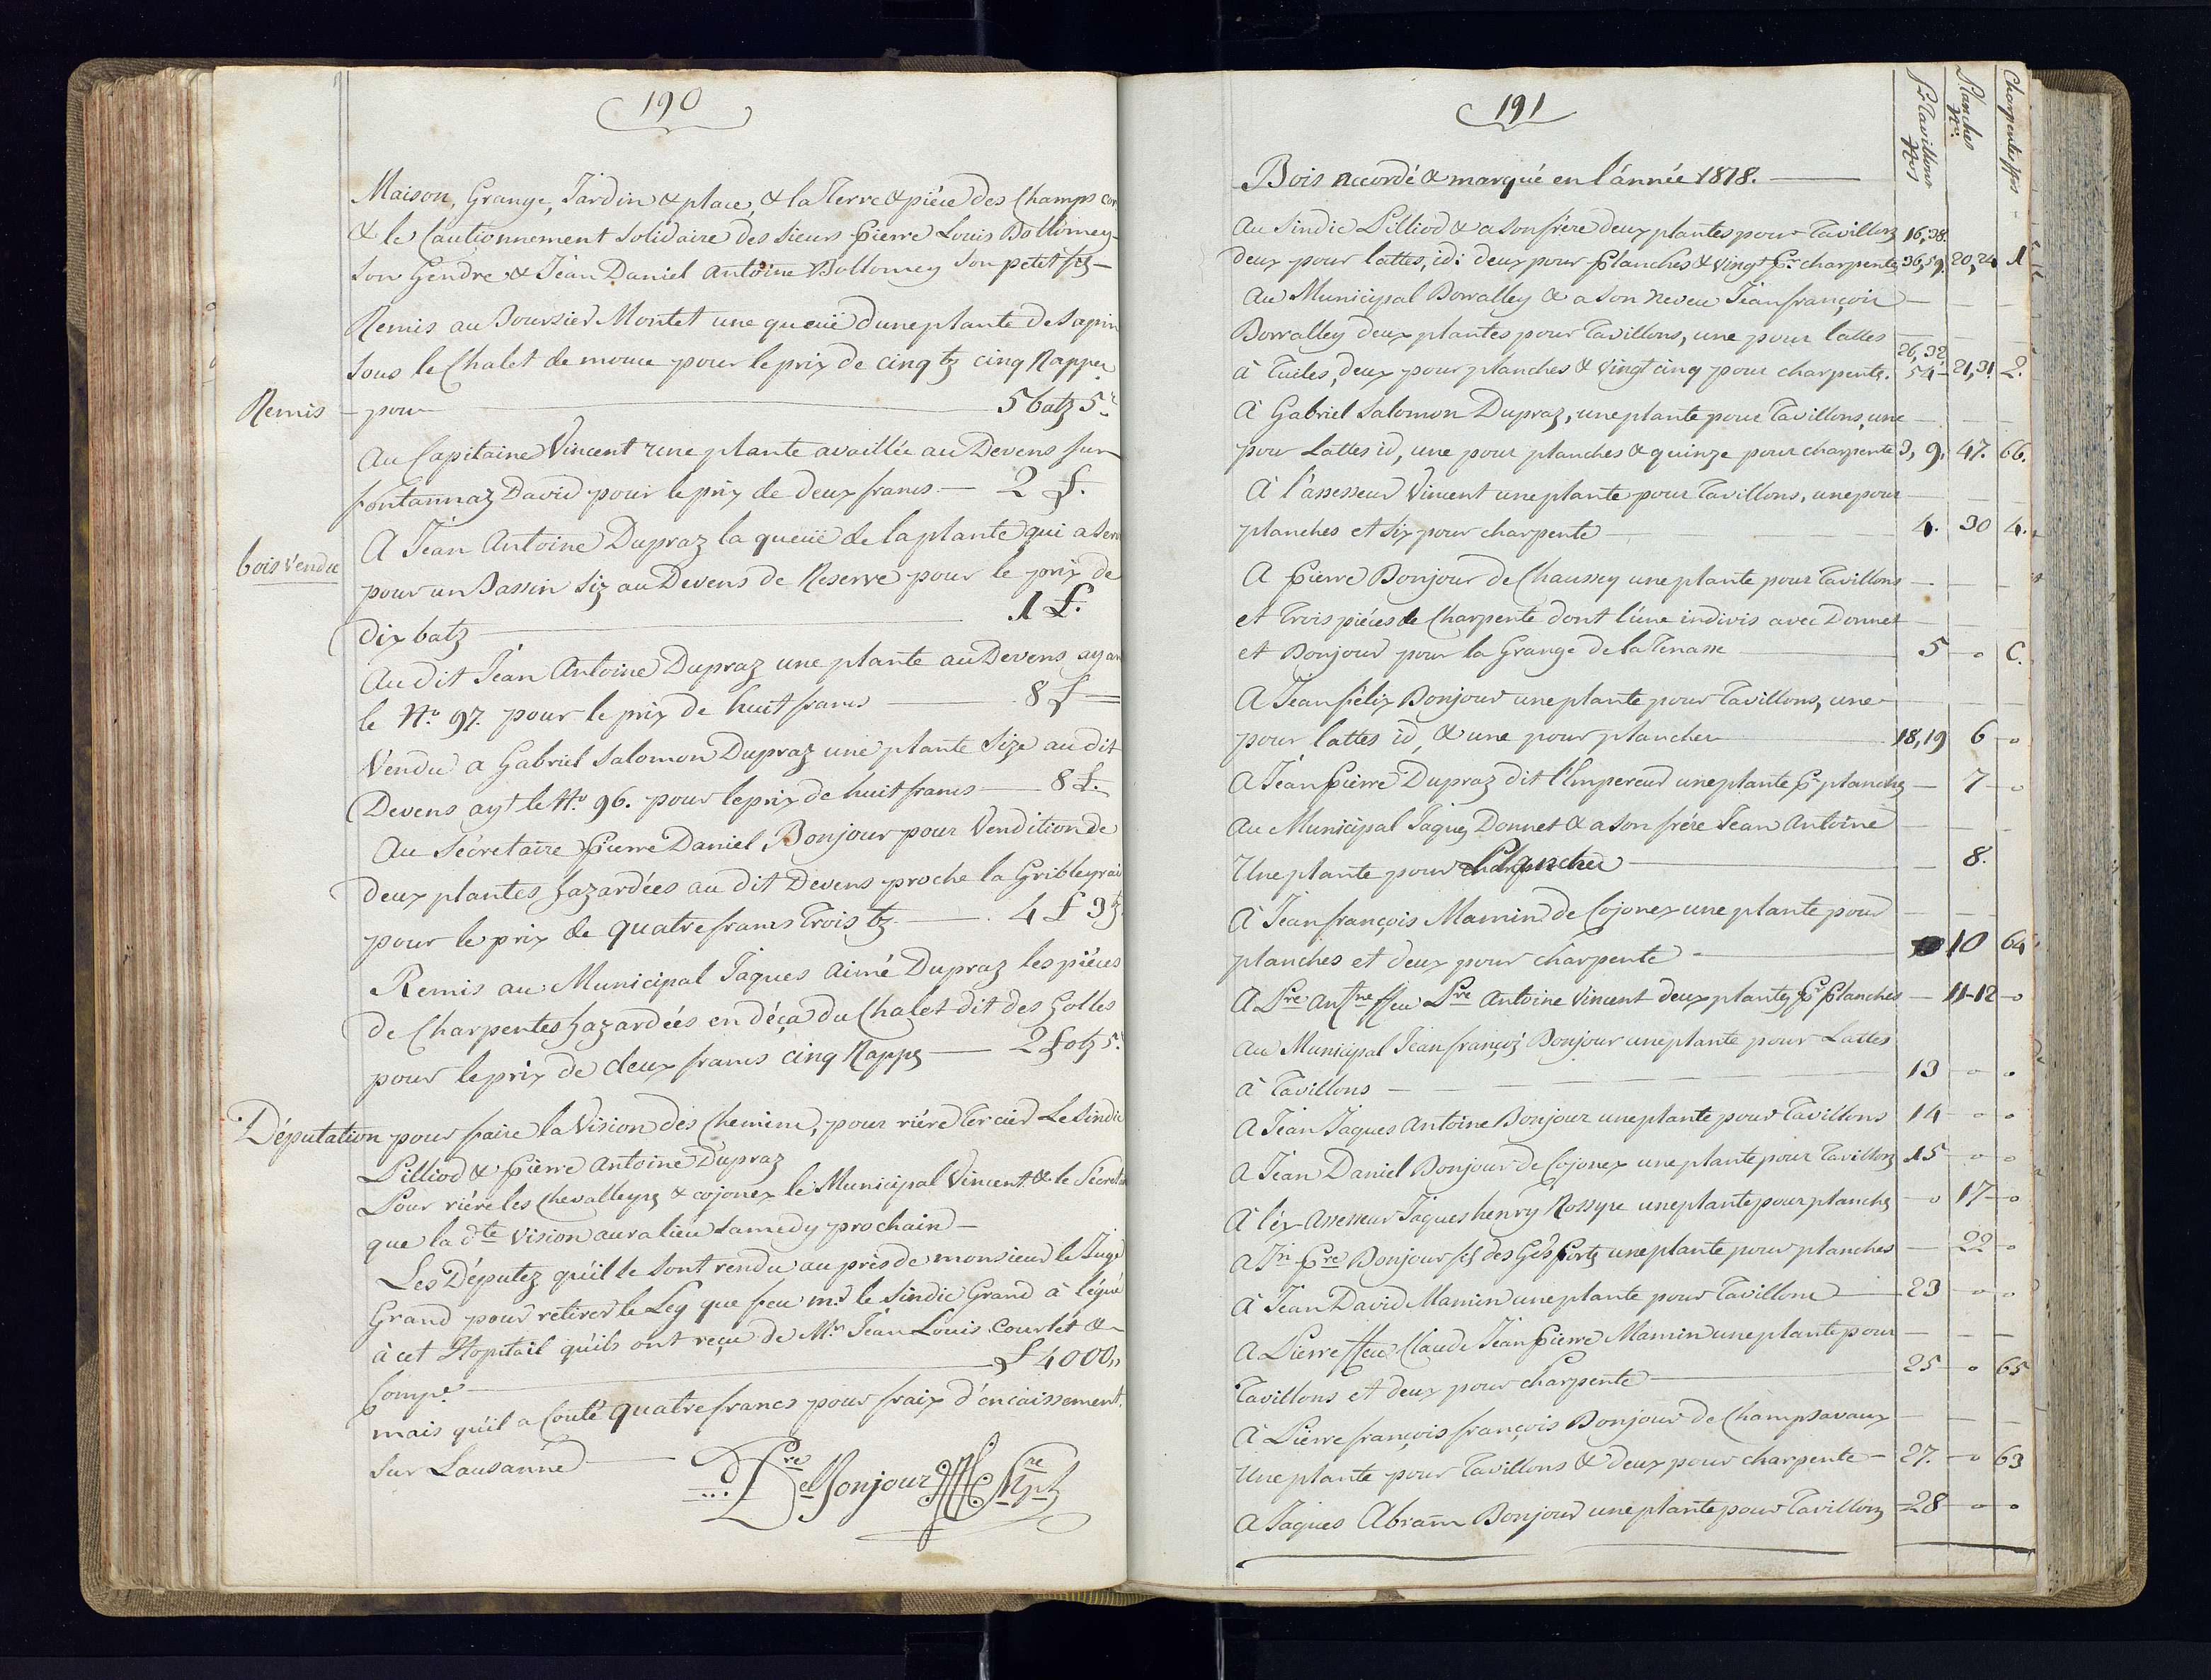 190
Maison, Grange, Jardin & place, & la Terre & piéce des Champs
& le Cautionnement Solidaire des Sieurs Pierre Louis Bollomey
Son Gendre & Jean Daniel Antoine Bollomey Son petit fils
Remis au Boursier Montet une queuë d'une plante de Sapin
Sous le Chalet de mouce pour le prix de cinq bz cinq Rappes
Remis
pour 5 batz 5r
Au Capitaine Vincent une plante availlée au Devens sur
fontannaz David pour le prix de deux francs 2 £.
bois vendu
A Jean Antoine Dupraz la queuë de la plante qui a servi
pour un Bassin Siz au Devens de Reserve pour le prix de
dix batz 1 £.
Au dit Jean Antoine Dupraz une plante au Devens ayan
le No. 97. pour le prix de huit francs 8 £
Vendu a Gabriel Salomon Dupraz une plante Size au dit
Devens ayt le No 96. pour le prix de huit francs 8 £.
Au Sécretaire Pierre Daniel Bonjour pour Vendition de
deux plantes hazardées au dit Devens proche la Gribleyrai
pour le prix de quatre francs trois bz 4 £ 3 bz
Remis au Municipal Jaques Aimé Dupraz les piéces
de Charpentes hazardées en déça du Chalet dit des Golles
pour le prix de deux francs cinq Rapps 2 £ 0 bz 5.
Députation pour faire la Vision des Chemins, pour riére Tercier Le Sindic
Pilliod & Pierre Antoine Dupraz
Pour riére les Chevalleyres & cojonex le Municipal Vincent & le Sécret
que la dte Vision aura lieu Samedy prochain
Les Députez qu'il se sont rendu au près de monsieur le Juge
Grand pour retirer le Leg que feu mr le Sindic Grand à légué
à cet Hopitail qu'ils ont reçu de Mr Jean Louis Courlet &
Compe £ 4000,,
mais qu'il a Couté quatre francs pour fraix d'encaissement
sur Lausanne
Pre Del Bonjour
191
Ps Tavillons Nos
Planches No.
Charpente
Bois accordé & marqué en l'année 1818.
Au Sindic Pilliod & a son frére deux plantes pour Tavillons 16, 38.
deux pour lattes, id: deux pour planches & vingt Pr charpente 36, 59. 20, 24. 1
Au Municipal Borralley & a son neveu Jean françois
Borralley deux plantes pour Tavillons, une pour lattes
à Tuiles, deux pour planches & vingt cinq pour charpente. 26, 32, 54 21, 31. 2.
A Gabriel Salomon Dupraz, une plante pour Tavillons, une
pour Lattes id, une pour planches & quinze pour charpente 3, 9. 47. 66.
A l'assesseur Vincent une plante pour Tavillons, une pour
planches et Six pour charpente 4. 30 4.
A Pierre Bonjour de Chaussey une plante pour Tavillons
et trois piéces de Charpente dont l'une indivis avec Donnet
et Bonjour pour la Grange de la Tenasse 5 o C.
A Jean félix Bonjour une plante pour Tavillons, une
pour lattes id, & une pour planches 18, 19 6 o
A Jean Pierre Dupraz dit l'Empereur une plante Pr planches 7 o
Au Municipal Jaques Donnet & a son frére Jean Antoine
Une plante pour Planches 8.
A Jean françois Mamin de Cojonex une plante pour
planches et deux pour charpente 10 64
A Pre Antne ffeu Pre Antoine Vincent deux plantes Pr Planches 11-12 o
Au Municipal Jean françois Bonjour une plante pour Lattes
à Tavillons 13 o o
A Jean Jaques Antoine Bonjour une plante pour Tavillons 14 o o
A Jean Daniel Bonjour de Cojonex une plante pour Tavillons 15 o o
A l'éx Assesseur Jaques henry Rossyre une plante pour planches o 17 o
A Jn Pre Bonjour fils des Gds Forts une plante pour planches 22 o
A Jean David Mamin une plante pour Tavillons 23 o o
A Pierre ffeu Claude Jean Pierre Mamin une plante pour
Tavillons et deux pour charpente 25 o 65
A Pierre françois françois Bonjour de Champsavaux
Une plante pour Tavillons & deux pour charpente 27. o 63
A Jaques Abram Bonjour une plante pour Tavillons 28 o o